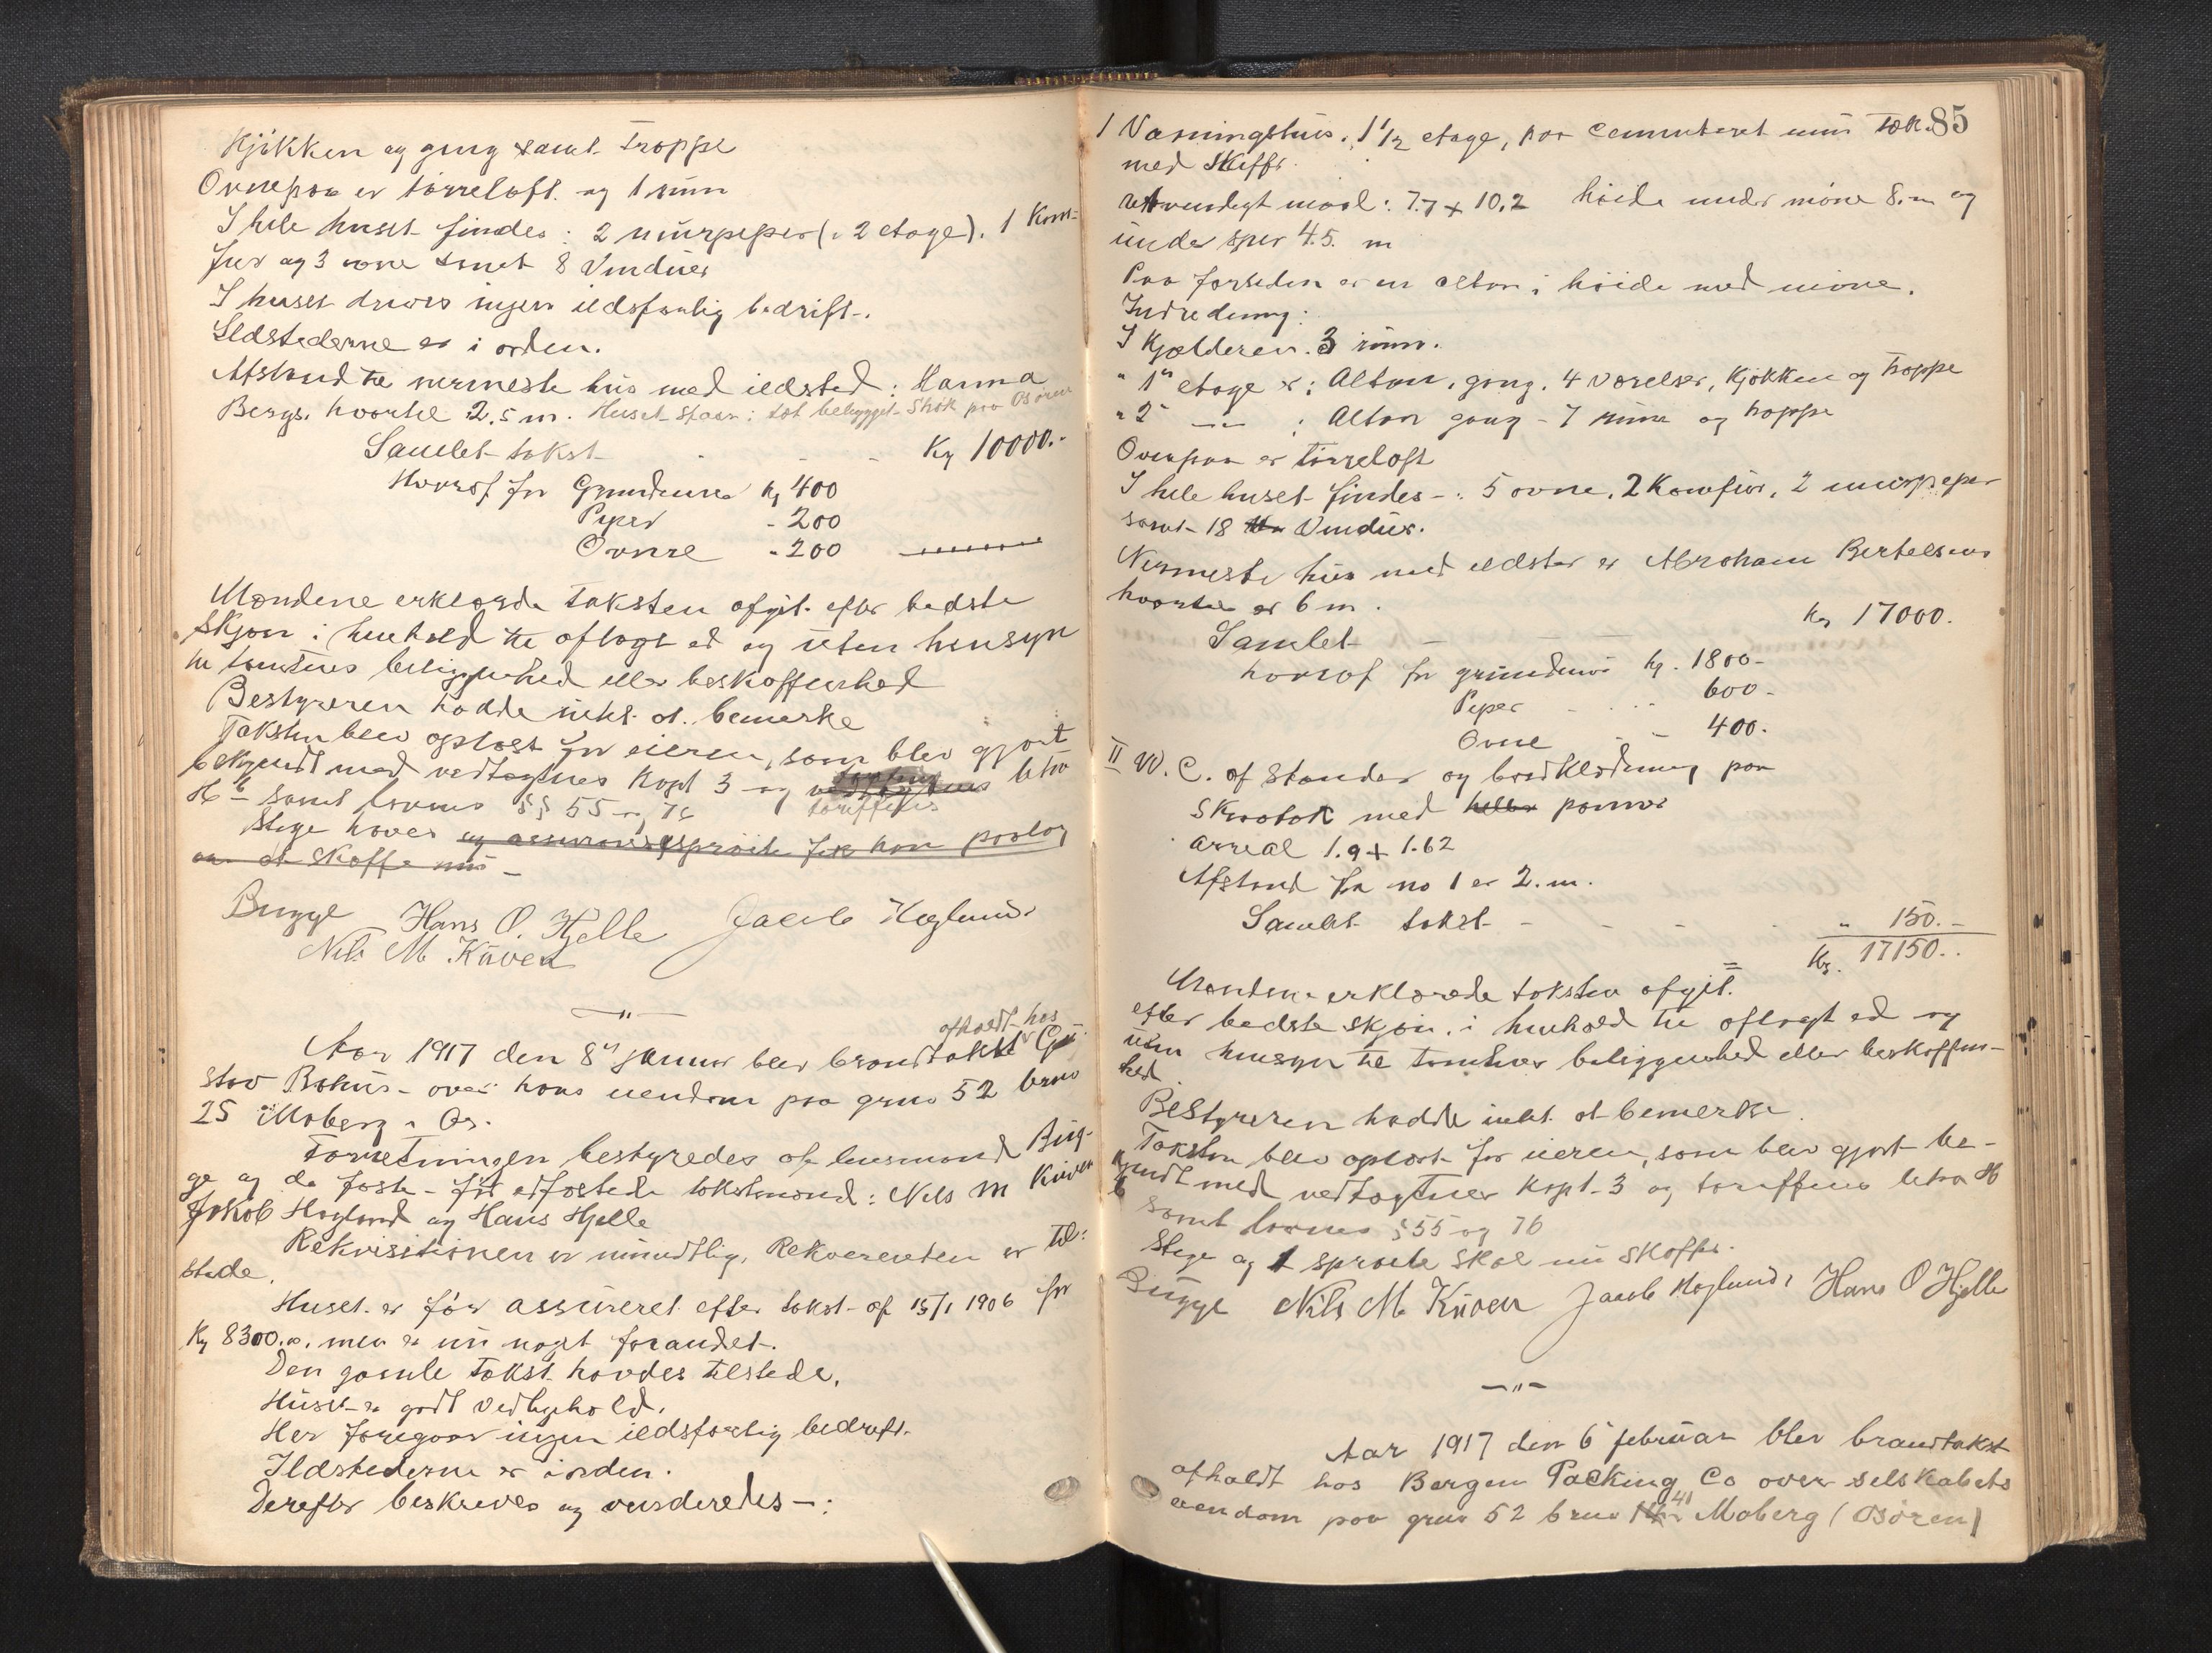 Kjøkken og gang samt trappe
Ovnepaa er tørreloft og 1 rum
I hele huset findes: 2 murpiper (i 2 etage). 1 Kom-
fur og 3 ovne samt 8 Vinduer
I huset drives ingen ildsfarlig bedrift.
Ildstederne er i orden.
Afstand til nermeste hus med ildsted: Hanna
Bergs. hvortil 2.5 m. Huset staar i tæt bebygget strøk paa Osøren
Samlet takst - - Kr 10000.-
Hvoraf for Grundmur kr 400
Piper - 200
Ovne - 200
Mændene erklærede taksten afgit efter bedste
skjøn i henhold til aflagt ed og uten hensyn
til tomtens beliggenhed eller beskaffenhed
Bestyreren hadde intet at bemerke
Taksten blev oplæst for eieren, som blev gjort
bekjendt med vedtægtnes kapt 3 og tariffens litra
H b samt lovens §§ 55 og 76
Stige haves og assuransesprøite fik han paalæg
om at skaffe nu -
Bugge Hans O. Hjelle Jacob Haglund
Nils M Kuven
—"—
Aar 1917 den 8de januar blev brandtakst afholdt hos Gu-
stav Bakus - over hans eiendom paa grno 52 brno
25 Moberg i Os.
Forretningen bestyredes af lensmand Bug-
ge og de faste - før edfæstede takstmænd: Nils M Kuven
Jakob Hagland og Hans Hjelle
Rekvisitionen er mundtlig. Rekvirenten er til-
stede.
Huset er før assureret efter takst af 15/1 1906 for
Kr 8300.00. men er nu noget forandret.
Den gamle takst havdes tilstede.
Huset er godt vedligehold.
Her foregaar ingen ildsfarlig bedrift.
Ildstederne er i orden.
Derefter beskreves og vurderedes -:
85
1 Vaaningshus. 1 1/2 etage, paa cementeret mur tæk.
med Skiffr.
utvendigt maal: 7.7 + 10.2 høide under møne 8.m og
under sper 4.5. m
Paa forsiden er en altan i høide med møne.
Indredning:
I Kjælderen. 3 rum.
" 1" etage er: Altan, gang, 4 værelser, Kjøkken og trappe
" 2" -"- : Altan gang - 7 rum og trappe
Ovenpaa er tørreloft
I hele huset findes -: 5 ovne, 2 Komfur, 2 murpiper
samt 18 Vinduer.
Nermeste hus med ildsted er Abraham Bertelsens
hvortil er 6 m.
Samlet - - Kr 17000.
hvoraf for grundmur kr. 1800-
Piper - 600-
Ovne - 400.
II W.C. af stander og bordklædning paa
skraatak med heller panner
areal 1.9 + 1.62
Afstand fra no 1 er 2. m.
Samlet takst - - - - " 150.-
Kr. 17150..
Mændene erklærede taksten afgit
efter bedste skjøn. i henhold til aflagt ed og
uten hensyn til tomtens beliggenhed eller beskaffen-
hed.
Bestyreren hadde intet at bemerke.
Taksten blev oplæst for eieren, som blev gjort be-
kjendt med vedtægtnes kapt. 3 og tariffens litra H
b samt lovens § 55 og 76
Stige og 1 sprøite skal nu skaffes.
Bugge Nils M Kuven Jacob Haglund Hans O Hjelle
—"—
Aar 1917 den 6 februar blev brandtakst
afholdt hos Bergen Packing Co over selskabets
eiendom paa grno 52 brno 41 Moberg (Osøren)